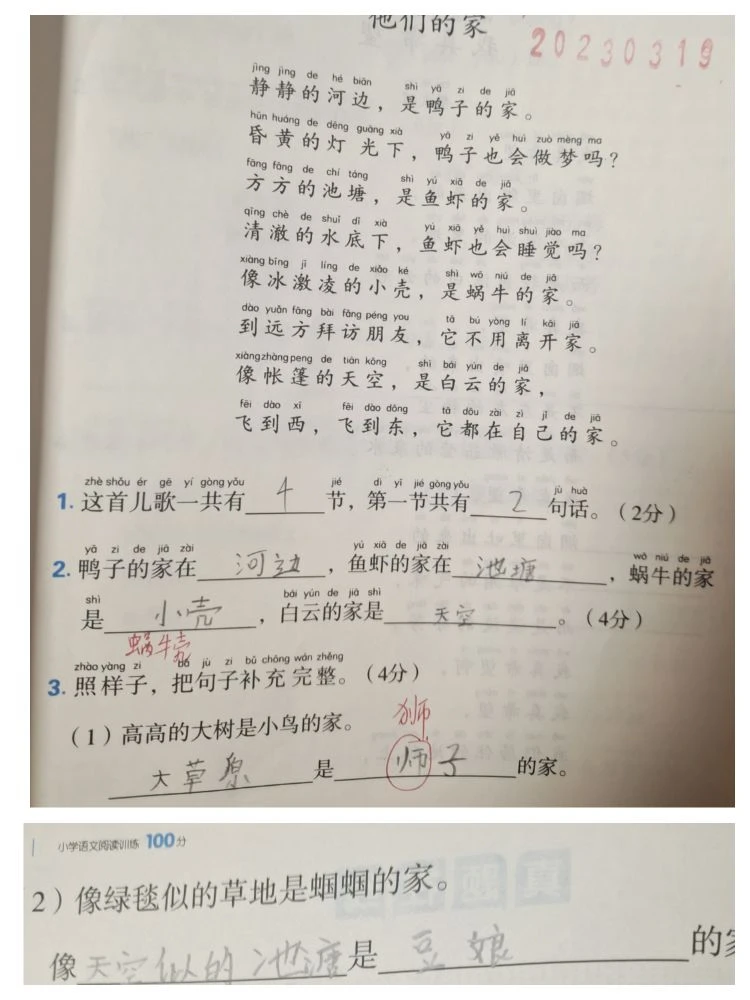 他们的家
20230319
jìng jìng de hé biān shì yā zi de jiā
静静的河边，是鸭子的家。
hūn huáng de dēng guāng xià yā zi yě huì zuò mèng ma
昏黄的灯光下，鸭子也会做梦吗？
fāng fāng de chí táng shì yú xiā de jiā
方方的池塘，是鱼虾的家。
qīng chè de shuǐ dǐ xià yú xiā yě huì shuì jiào ma
清澈的水底下，鱼虾也会睡觉吗？
xiàng bīng jī líng de xiǎo ké shì wō niú de jiā
像冰激凌的小壳，是蜗牛的家。
dào yuǎn fāng bài fǎng péng you tā bú yòng lí kāi jiā
到远方拜访朋友，它不用离开家。
xiàng zhàng peng de tiān kōng shì bái yún de jiā
像帐篷的天空，是白云的家，
fēi dào xī fēi dào dōng tā dōu zài zì jǐ de jiā
飞到西，飞到东，它都在自己的家。
zhè shǒu ér gē yí gòng yǒu jié dì yī jié gòng yǒu jù huà
1. 这首儿歌一共有 4 节，第一节共有 2 句话。（2分）
yā zi de jiā zài yú xiā de jiā zài wō niú de jiā
2. 鸭子的家在 河边，鱼虾的家在 池塘，蜗牛的家
shì bái yún de jiā shì
是 小壳，白云的家是 天空。（4分）
蜗牛壳
zhào yàng zi bǎ jù zi bǔ chōng wán zhěng
3. 照样子，把句子补充完整。（4分）
（1）高高的大树是小鸟的家。
狮
大草原是师子的家。
小学语文阅读训练100分
2）像绿毯似的草地是蝈蝈的家。
像天空似的池溏是豆娘的